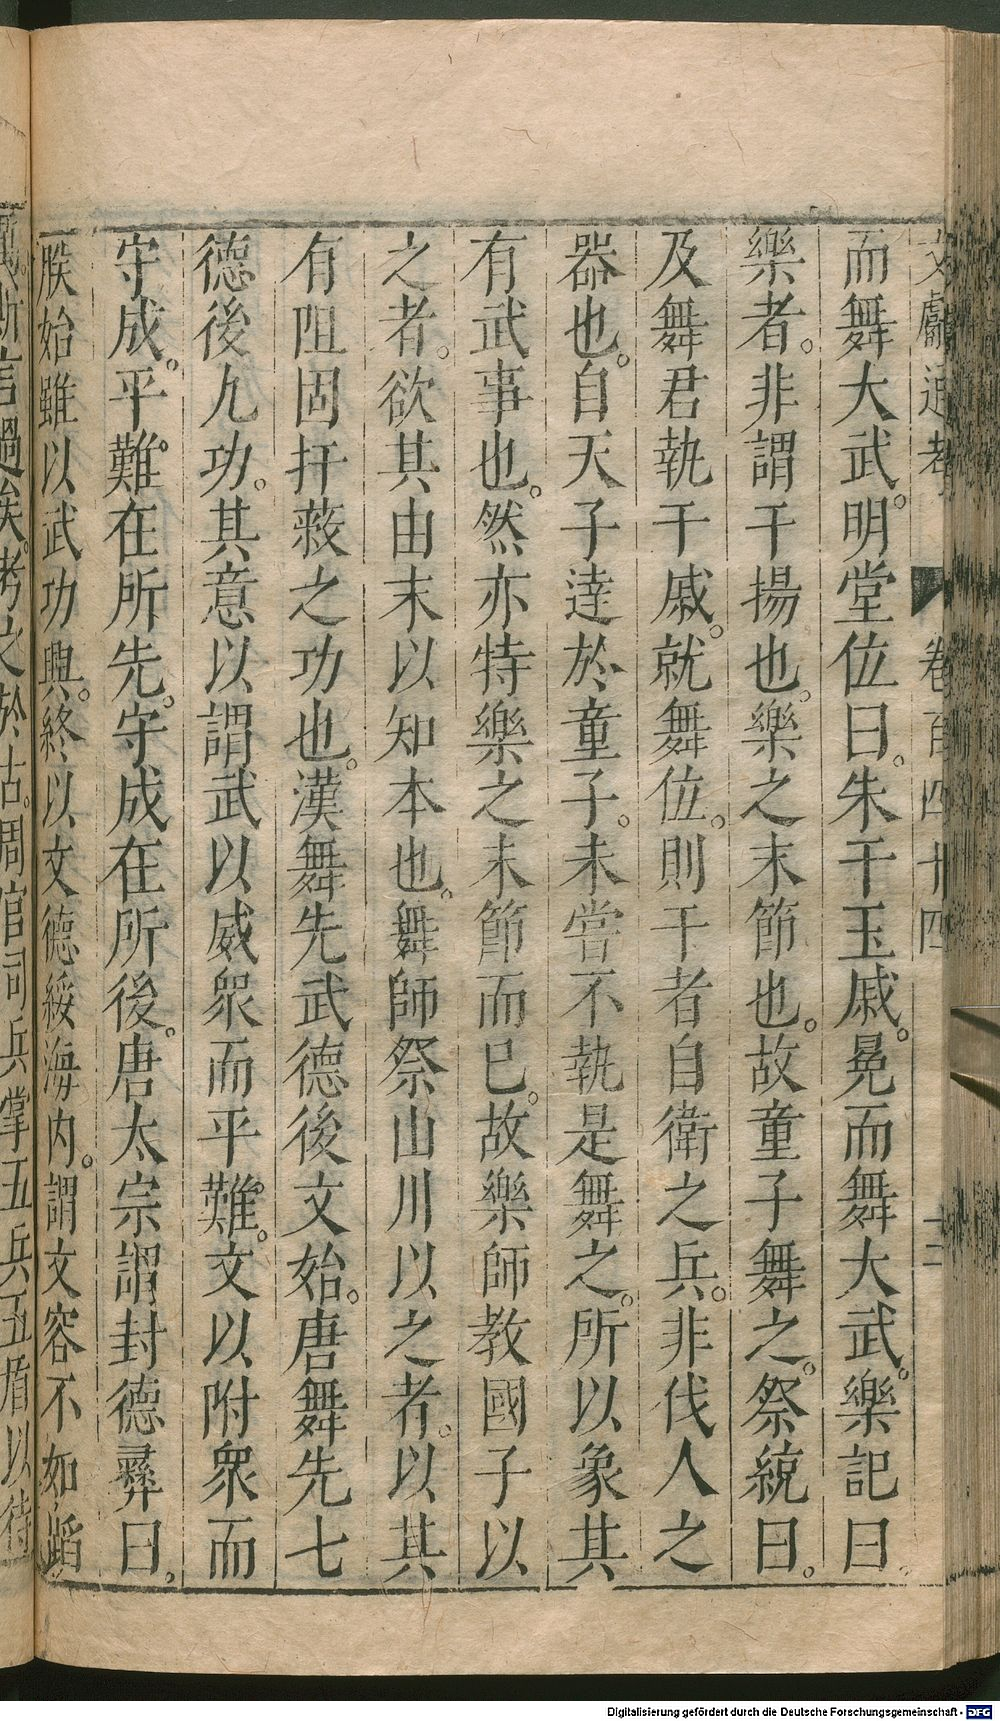 文獻通考 卷百四十四 十二
而舞大武。明堂位曰。朱干玉戚。冕而舞大武。樂記曰。
樂者。非謂干揚也。樂之末節也。故童子舞之。祭統曰。
及舞君執干戚。就舞位。則干者自衛之兵。非伐人之
器也。自天子達於童子。未嘗不執是舞之。所以象其
有武事也。然亦特樂之末節而已。故樂師教國子以
之者。欲其由末以知本也。舞師祭山川以之者。以其
有阻固扞蔽之功也。漢舞先武德後文始。唐舞先七
德後九功。其意以謂武以威衆而平難。文以附衆而
守成。平難在所先。守成在所後。唐太宗謂封德彝曰。
朕始雖以武功興。終以文德綏海內。謂文容不如蹈
斯言過矣。考之於古。周官司兵掌五兵五盾以待
Digitalisierung gefördert durch die Deutsche Forschungsgemeinschaft - DFG